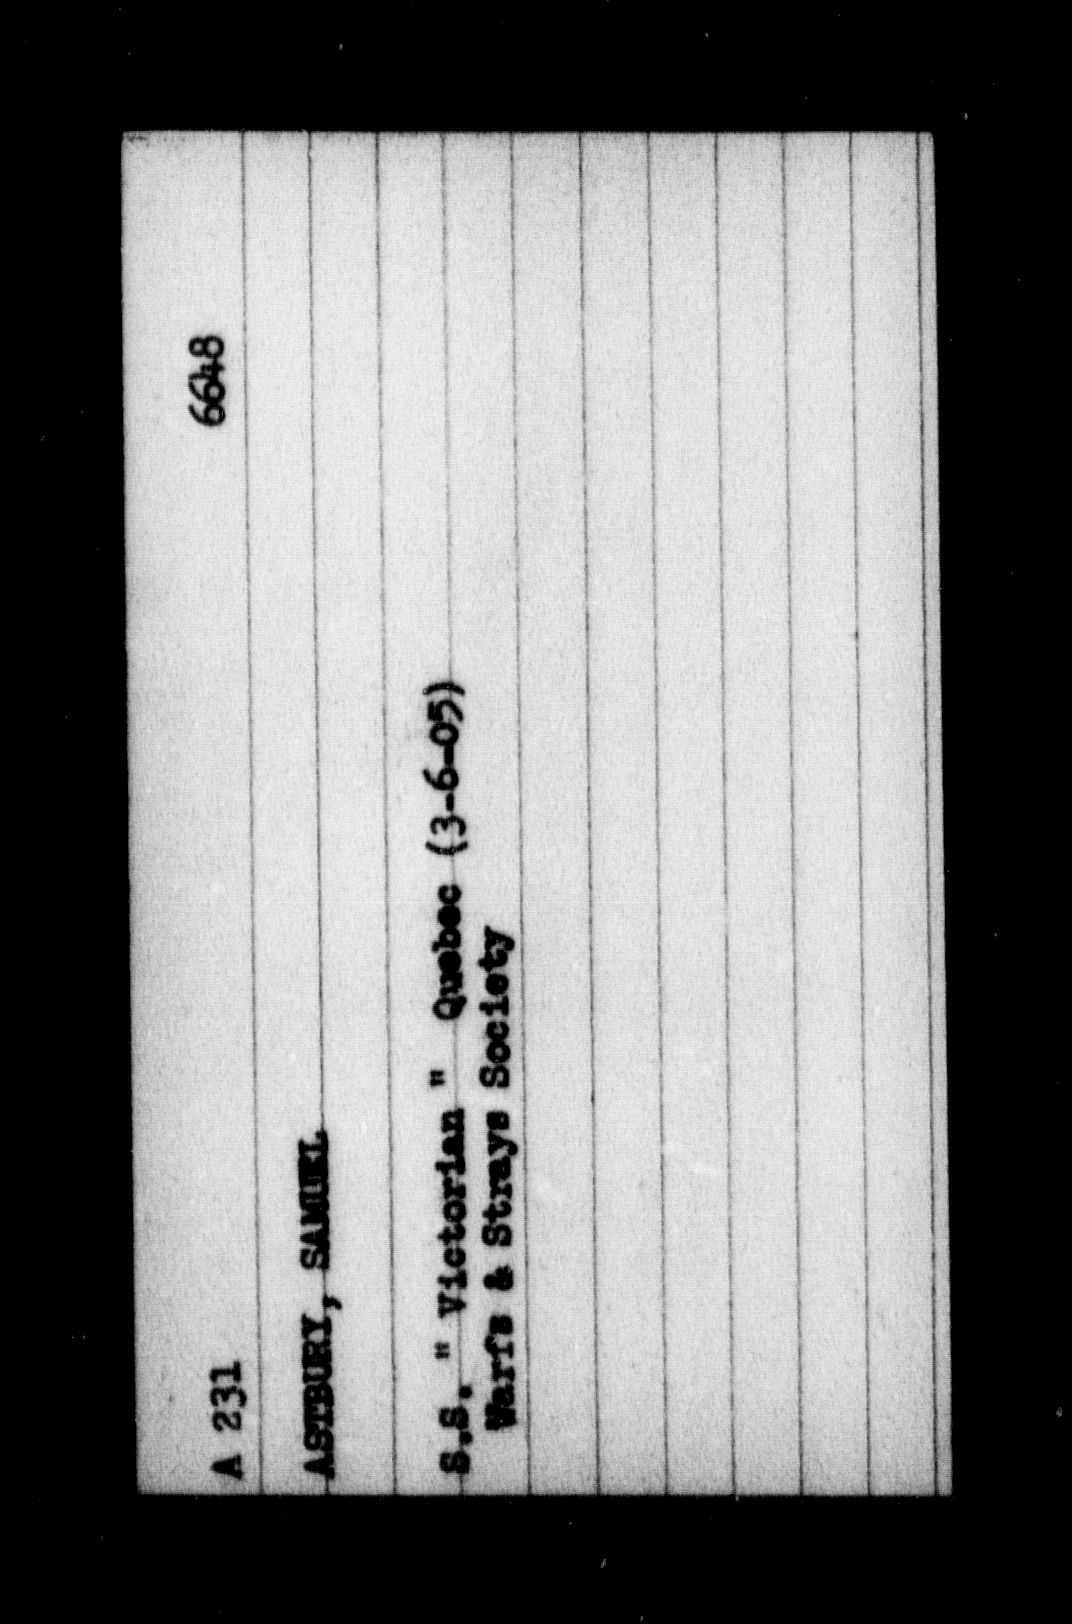 A 231 6648
ASTBURY, SAMUEL
S.S. " Victorian " Quebec (3-6-05)
Warfs & Strays Society